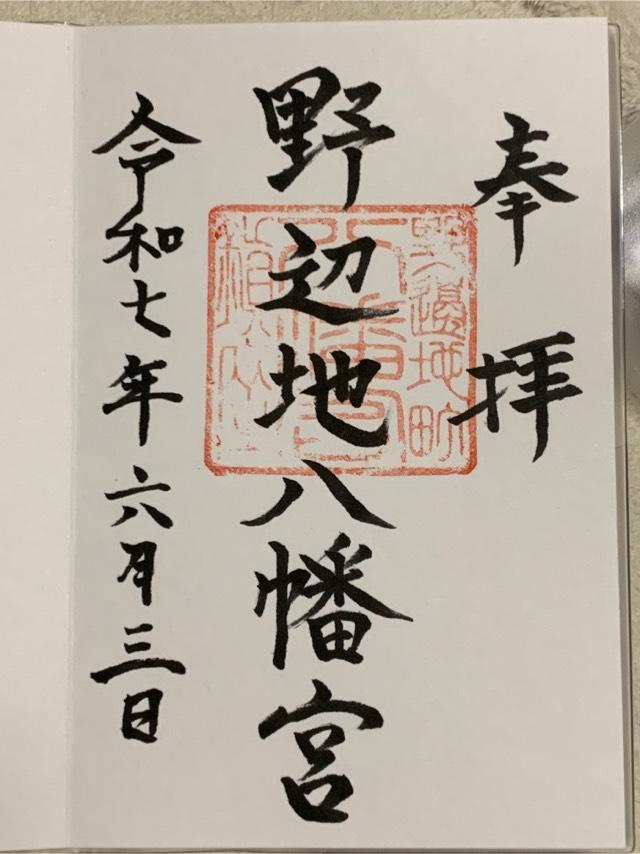 奉拝
野辺地八幡宮
令和七年六月三日
野邊地町